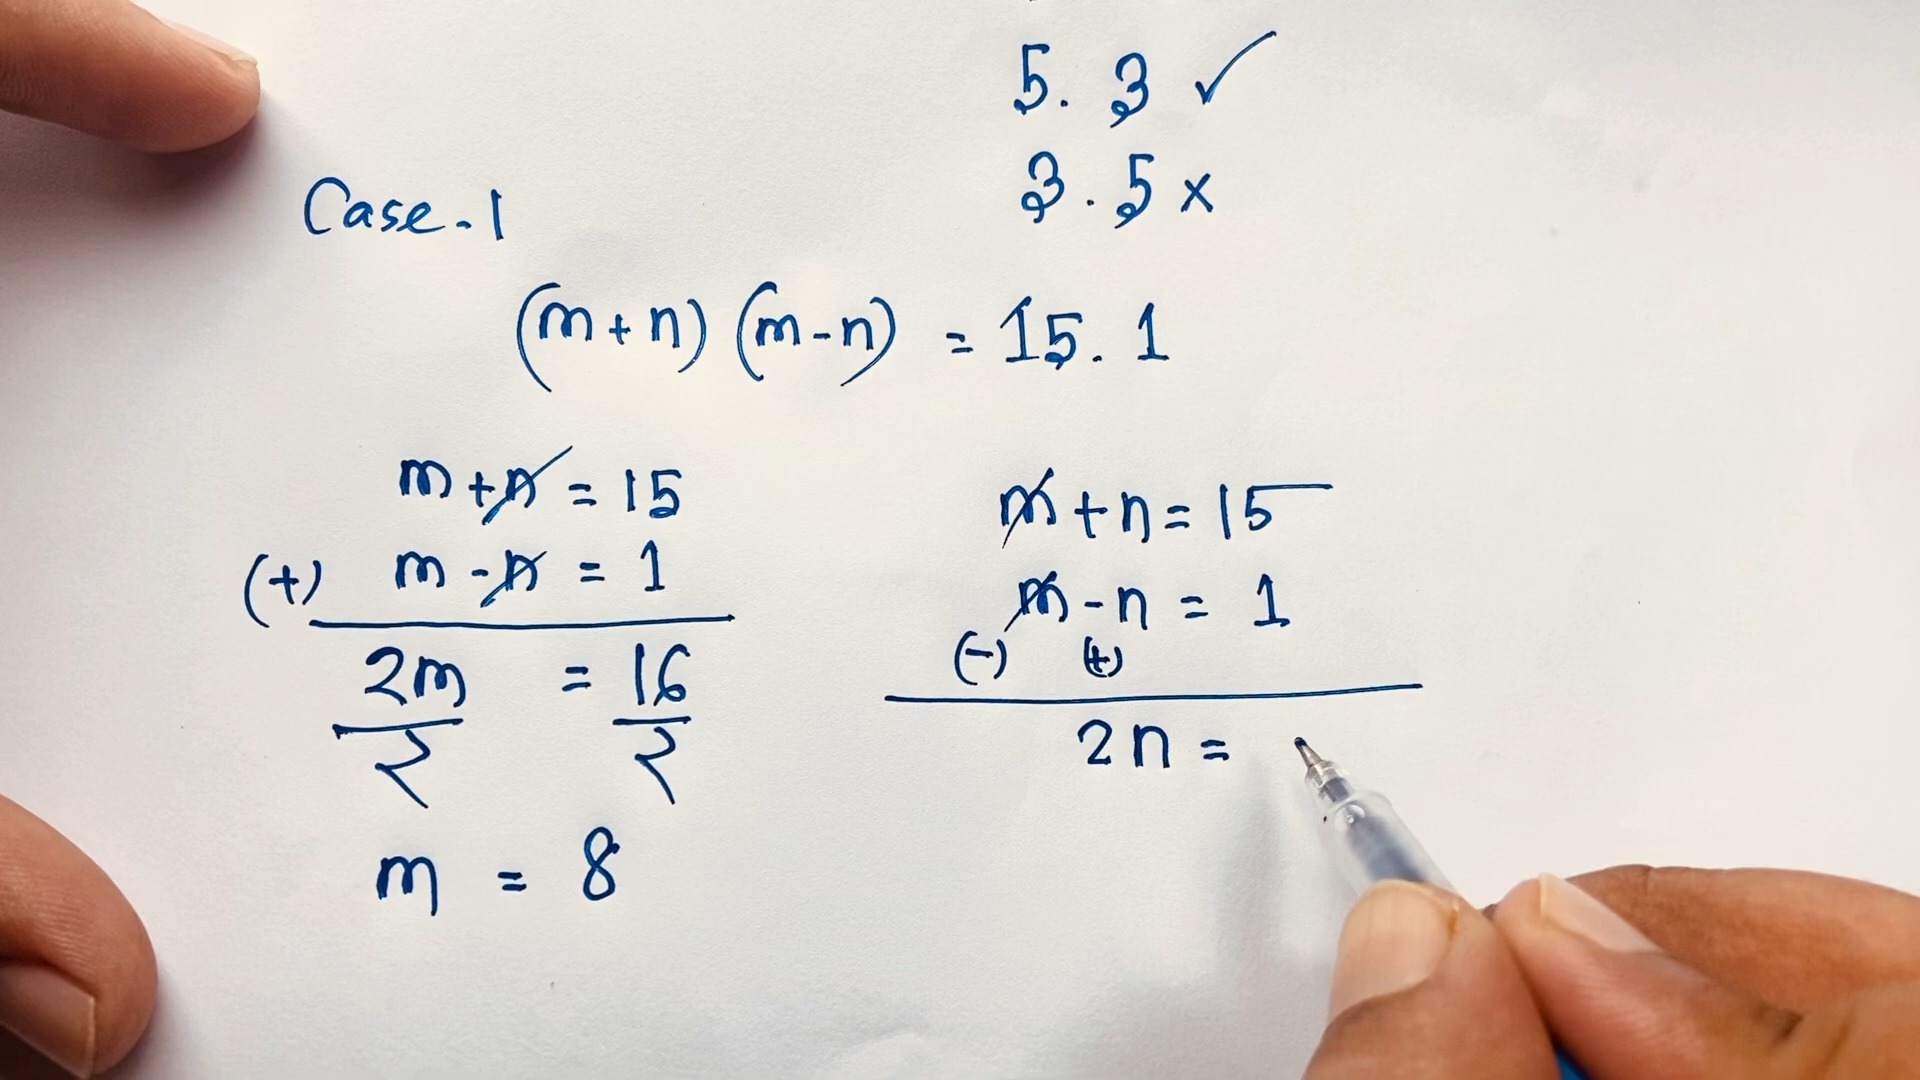 5. 3 ✓
3. 5 x
Case-1
(m+n) (m-n) = 15. 1
m+n = 15
(+) m-n = 1
2m/2 = 16/2
m = 8
m+n = 15
m-n = 1
(-) (+)
2n =